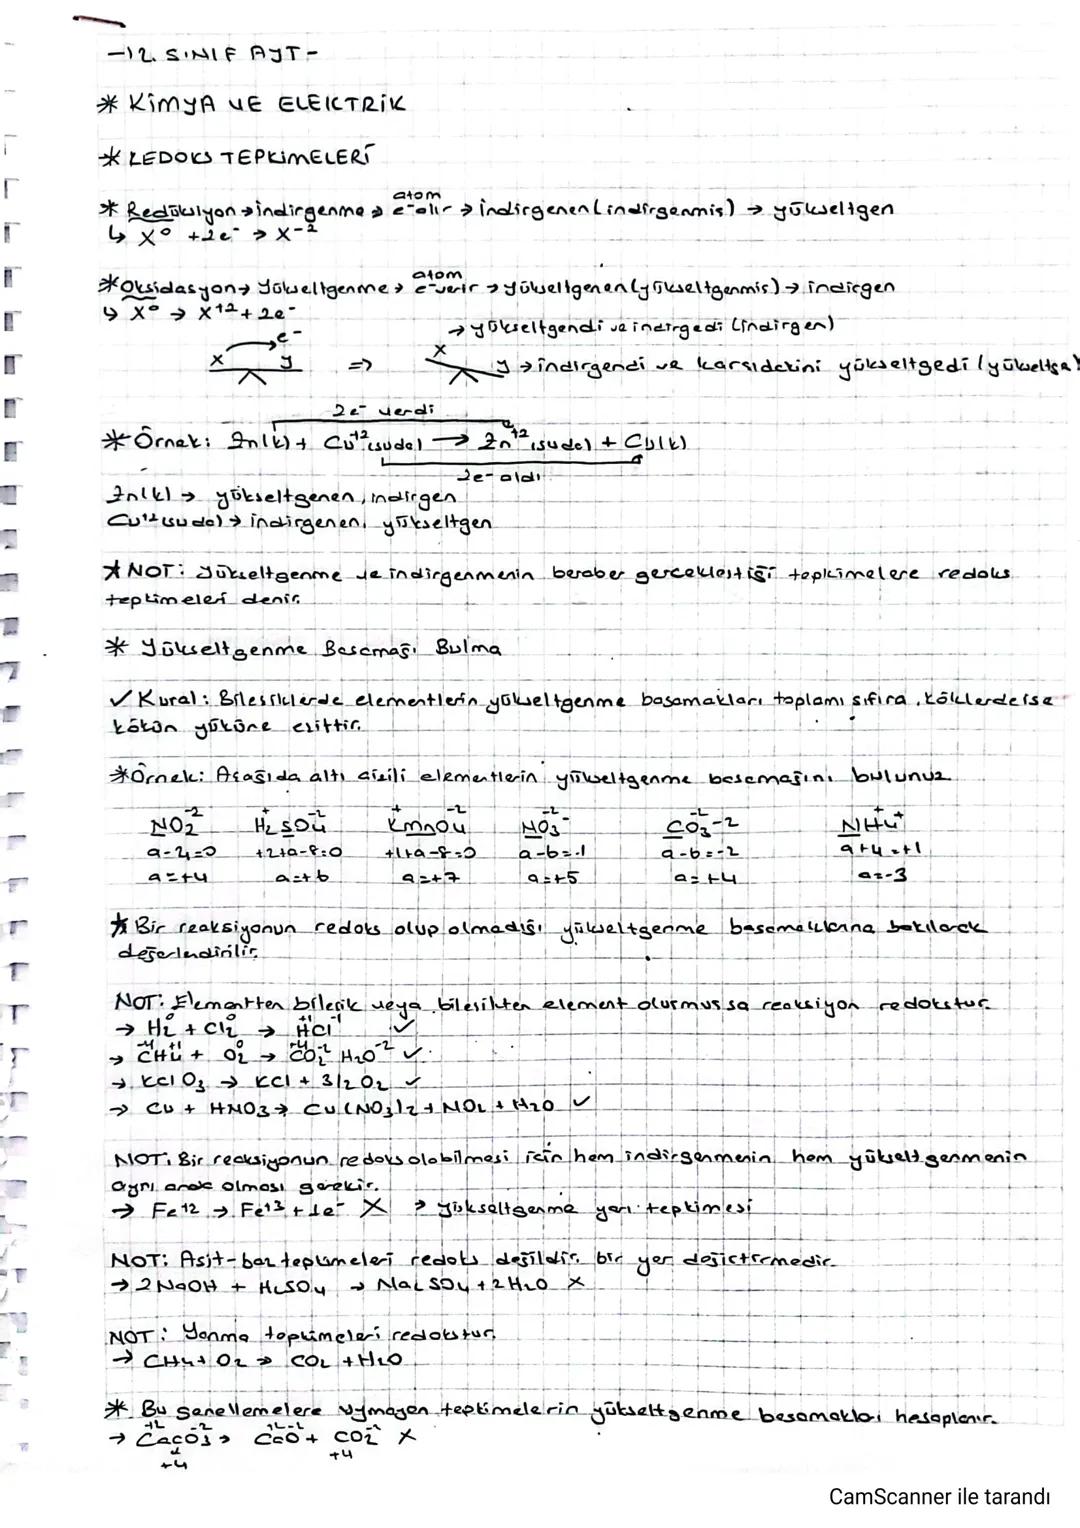 -12. SINIF AYT-
* KİMYA VE ELEKTRİK
* REDOKS TEPKİMELERİ
* Redüksiyon → indirgenme → atom e⁻ alır → indirgenen (indirgenmiş) → yükseltgen
↳ X⁰ +2e⁻ → X⁻²
* Oksidasyon → Yükseltgenme → atom e⁻ verir → yükseltgenen (yükseltgenmiş) → indirgen
↳ X⁰ → X⁺² + 2e⁻
→ yükseltgendi ve indirgedi (indirgen)
X e⁻ y ⇒ X y → indirgendi ve karşıdakini yükseltgedi (yükseltge)
2e⁻ verdi
* Örnek: Zn(k) + Cu⁺²(suda) → Zn⁺²(suda) + Cu(k)
2e⁻ aldı
Zn(k) → yükseltgenen, indirgen
Cu⁺²(suda) → indirgenen, yükseltgen
* NOT: Yükseltgenme ve indirgenmenin beraber gerçekleştiği tepkimelere redoks
tepkimeleri denir.
* Yükseltgenme Basamağı Bulma
✓ Kural: Bileşiklerde elementlerin yükseltgenme basamakları toplamı sıfıra, köklerde ise
kökün yüküne eşittir.
* Örnek: Aşağıda altı çizili elementlerin yükseltgenme basamağını bulunuz
-2 + -2 + -2 -2 -2 +
NO₂ H₂SO₄ KMnO₄ NO₃⁻ CO₃⁻² NH₄⁺
a-4=0 +2+a-8=0 +1+a-8=0 a-6=-1 a-6=-2 a+4=+1
a=+4 a=+6 a=+7 a=+5 a=+4 a=-3
* Bir reaksiyonun redoks olup olmadığı yükseltgenme basamaklarına bakılarak
değerlendirilir.
NOT: Elementten bileşik veya bileşikten element oluşmuşsa reaksiyon redokstur.
0 0 +1 -1
→ H₂ + Cl₂ → HCl ✓
-4 +1 0 +4 -2 -2
→ CH₄ + O₂ → CO₂ H₂O ✓
→ KClO₃ → KCl + 3/2 O₂ ✓
→ Cu + HNO₃ → Cu(NO₃)₂ + NO₂ + H₂O ✓
NOT: Bir reaksiyonun redoks olabilmesi için hem indirgenmenin hem yükseltgenmenin
aynı anda olması gerekir.
→ Fe⁺² → Fe⁺³ + 1e⁻ X → yükseltgenme yarı tepkimesi
NOT: Asit-baz tepkimeleri redoks değildir. bir yer değiştirmedir.
→ 2NaOH + H₂SO₄ → Na₂SO₄ + 2H₂O X
NOT: Yanma tepkimeleri redokstur.
→ CH₄ + O₂ → CO₂ + H₂O
* Bu genellemelere uymayan tepkimelerin yükseltgenme basamakları hesaplanır.
+2 -2 +2 -2 -2
→ CaCO₃ → CaO + CO₂ X
+4 +4
CamScanner ile tarandı